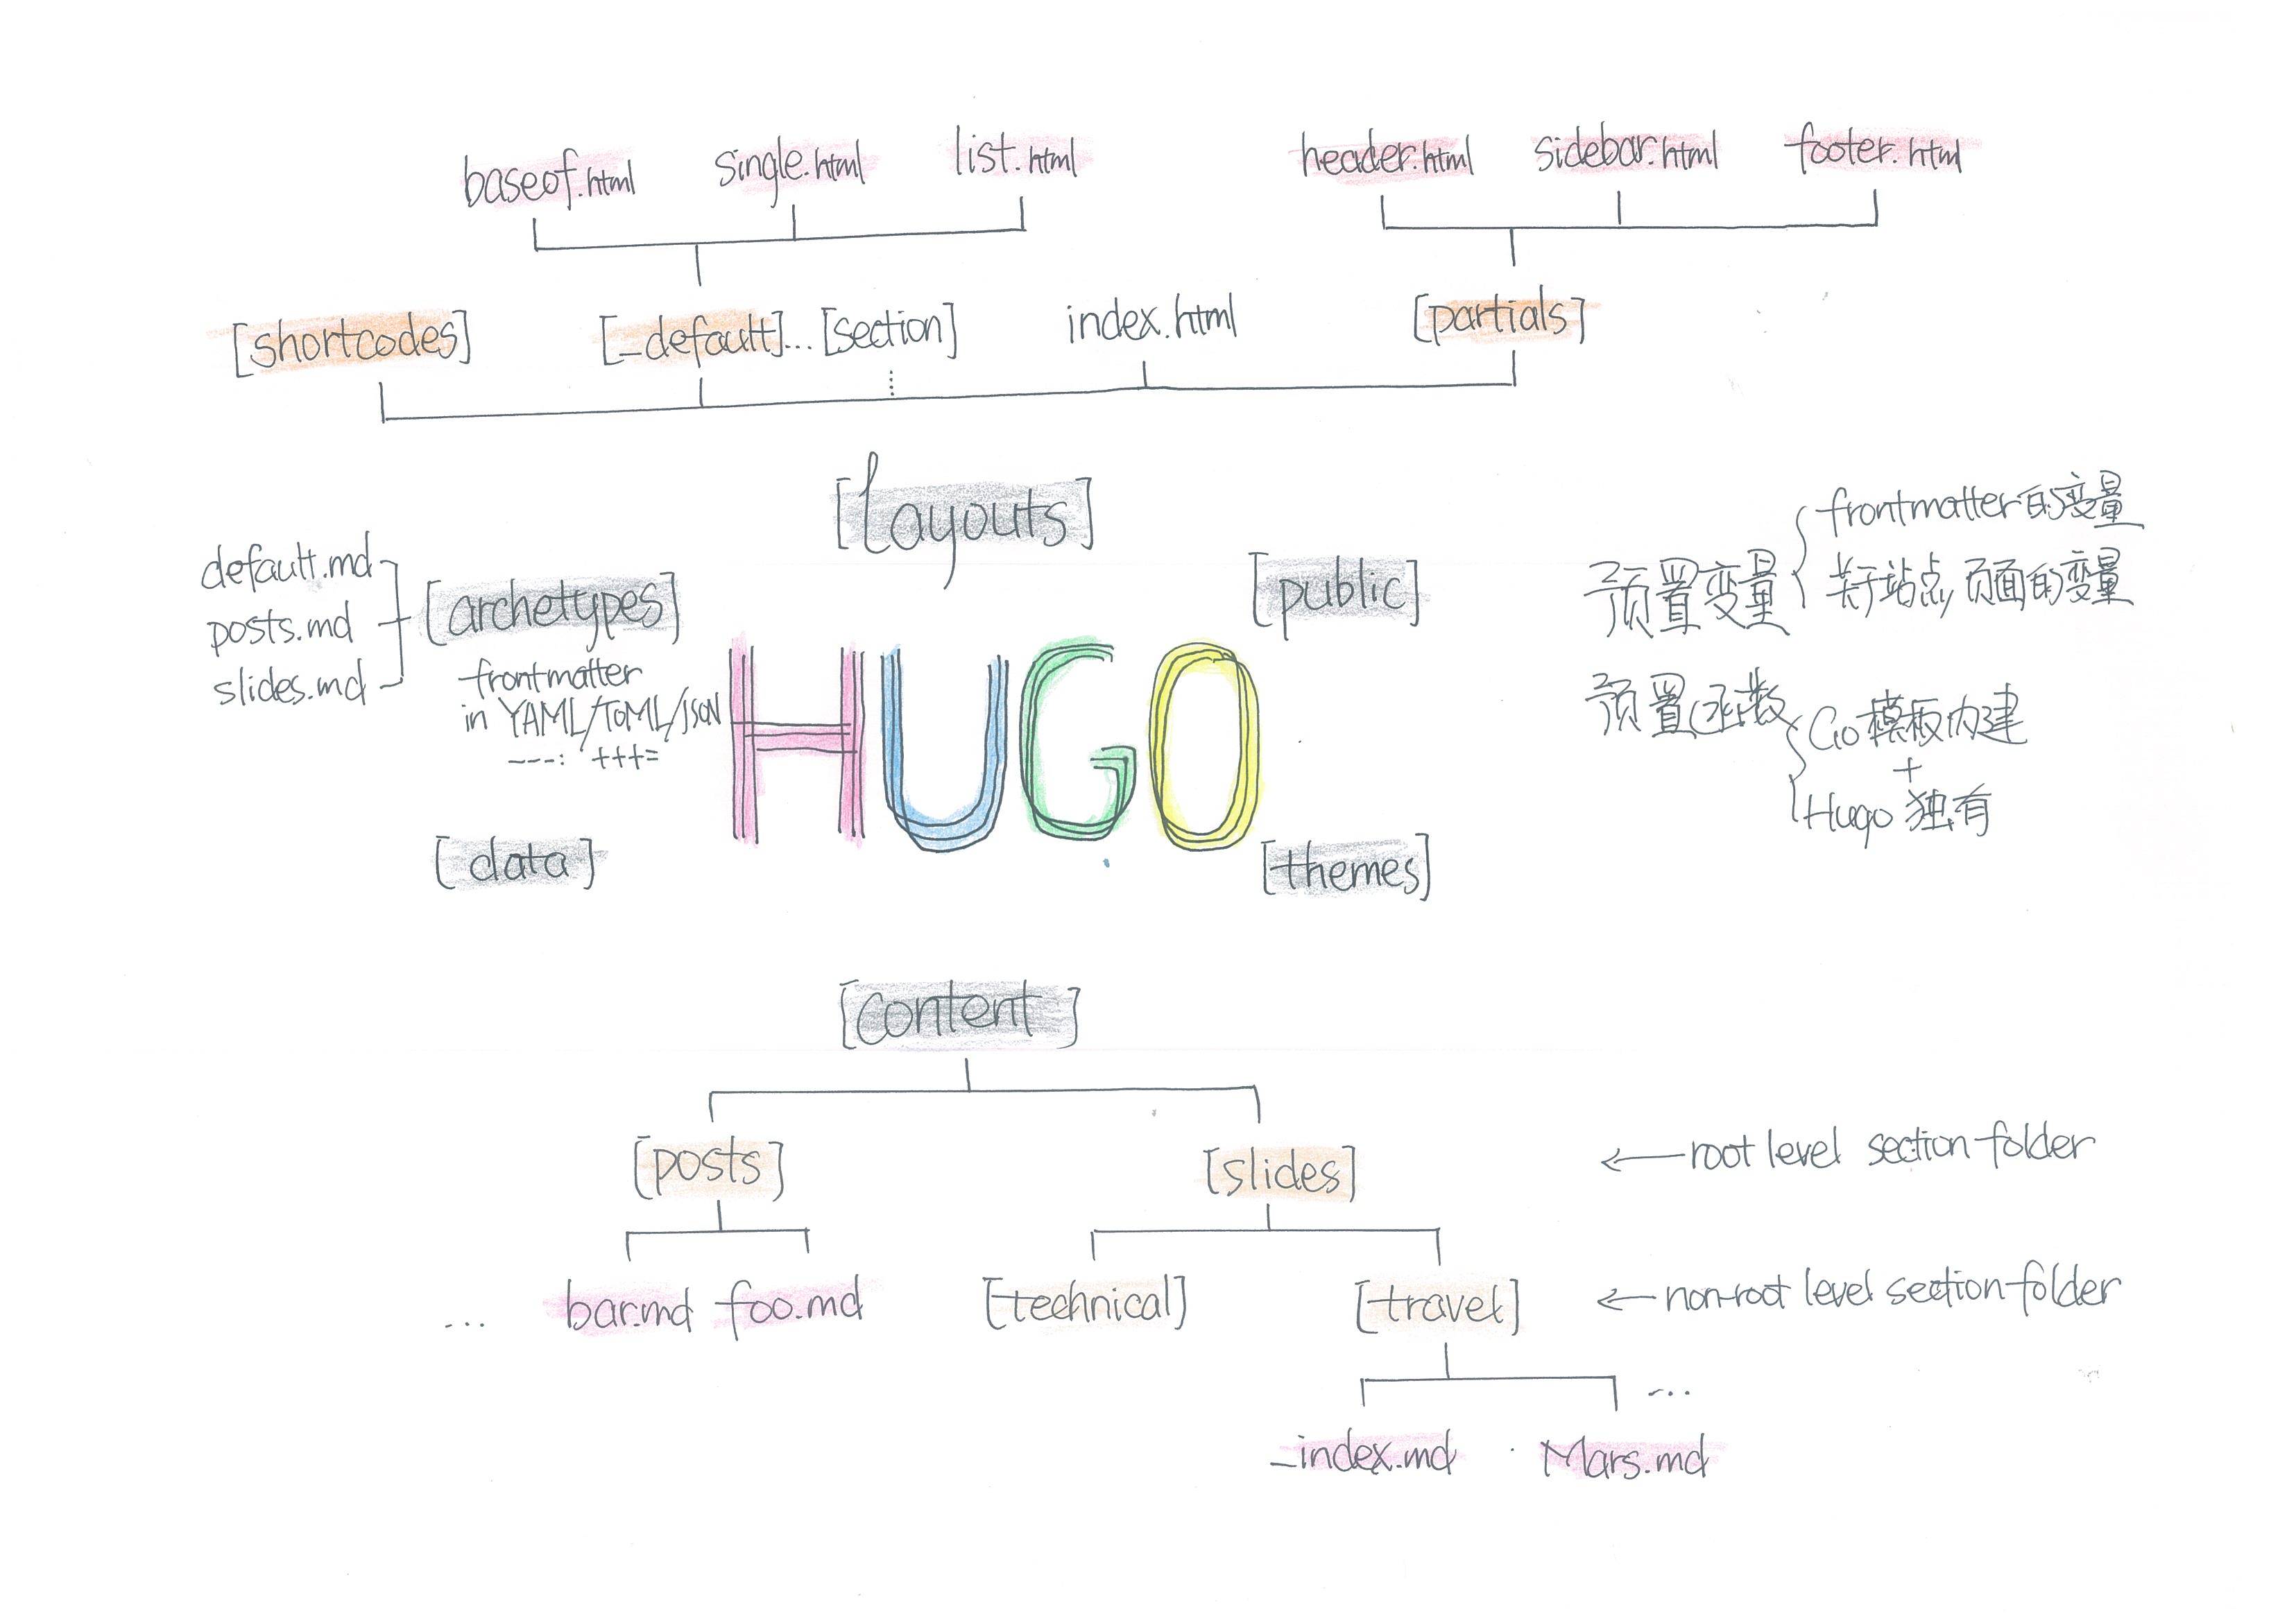 baseof.html single.html list.html
header.html sidebar.html footer.html
[shortcodes] [_default]... [section] index.html [partials]
[layouts]
default.md
posts.md
slides.md
[archetypes]
frontmatter
in YAML/TOML/JSON
---: +++=
[public]
HUGO
[data]
[themes]
预置变量
frontmatter的变量
关于站点,页面的变量
预置函数
Go模板内建
+
Hugo 独有
[content]
[posts] [slides] ← root level section folder
... bar.md foo.md [technical] [travel] ← non-root level section folder
...
_index.md Mars.md